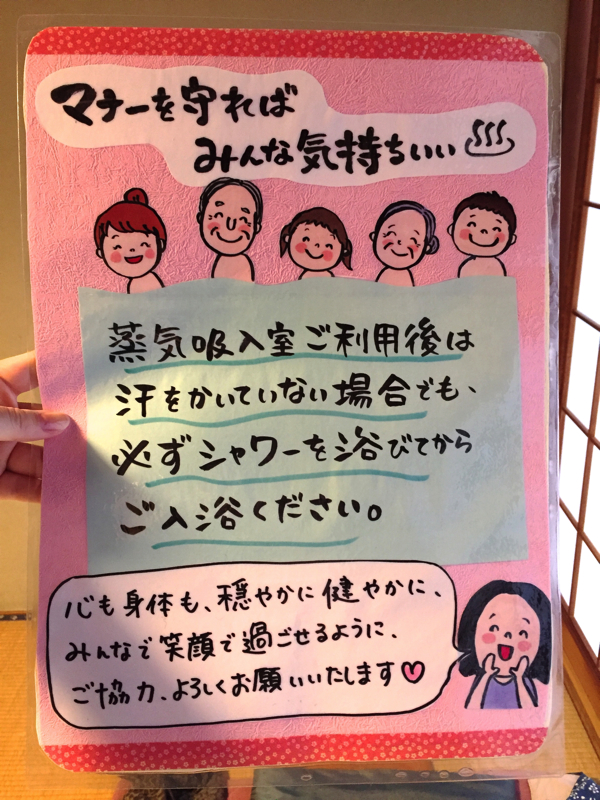 マナーを守れば
みんな気持ちいい♨
蒸気吸入室ご利用後は
汗をかいていない場合でも、
必ずシャワーを浴びてから
ご入浴ください。
心も身体も、穏やかに健やかに、
みんなで笑顔で過ごせるように、
ご協力、よろしくお願いいたします♡